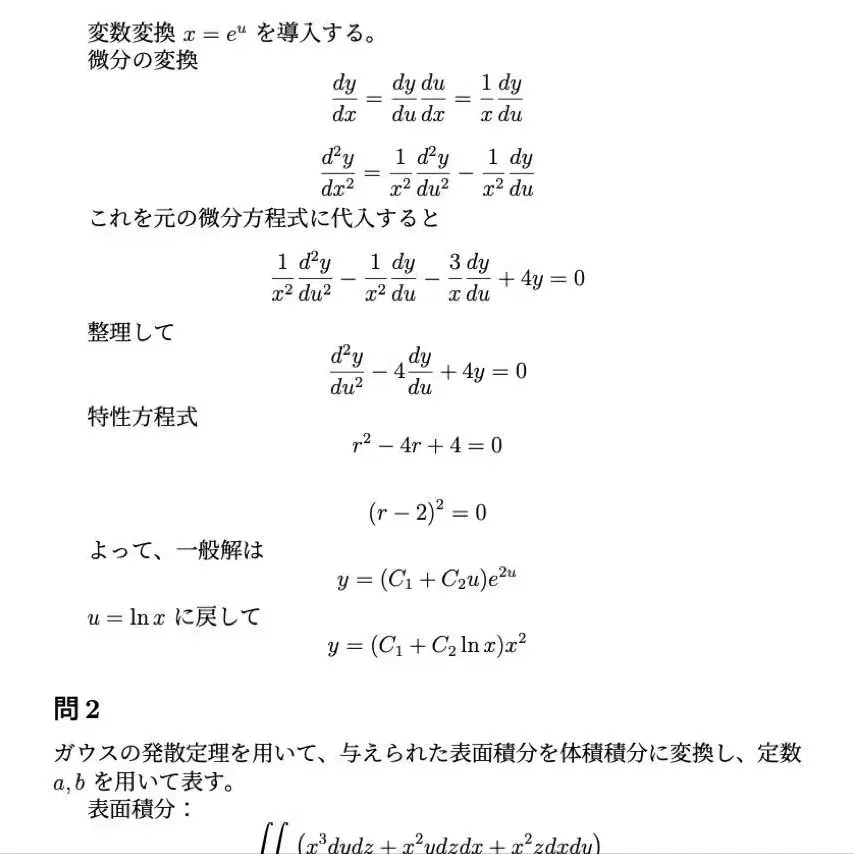 変数変換 x = e^u を導入する。
微分の変換
\frac{dy}{dx} = \frac{dy}{du}\frac{du}{dx} = \frac{1}{x}\frac{dy}{du}
\frac{d^2y}{dx^2} = \frac{1}{x^2}\frac{d^2y}{du^2} - \frac{1}{x^2}\frac{dy}{du}
これを元の微分方程式に代入すると
\frac{1}{x^2}\frac{d^2y}{du^2} - \frac{1}{x^2}\frac{dy}{du} - \frac{3}{x}\frac{dy}{du} + 4y = 0
整理して
\frac{d^2y}{du^2} - 4\frac{dy}{du} + 4y = 0
特性方程式
r^2 - 4r + 4 = 0
(r - 2)^2 = 0
よって、一般解は
y = (C_1 + C_2u)e^{2u}
u = ln x に戻して
y = (C_1 + C_2 ln x)x^2
問 2
ガウスの発散定理を用いて、与えられた表面積分を体積積分に変換し、定数
a, b を用いて表す。
表面積分：
∬ (x^3dydz + x^2ydzdx + x^2zdxdy)